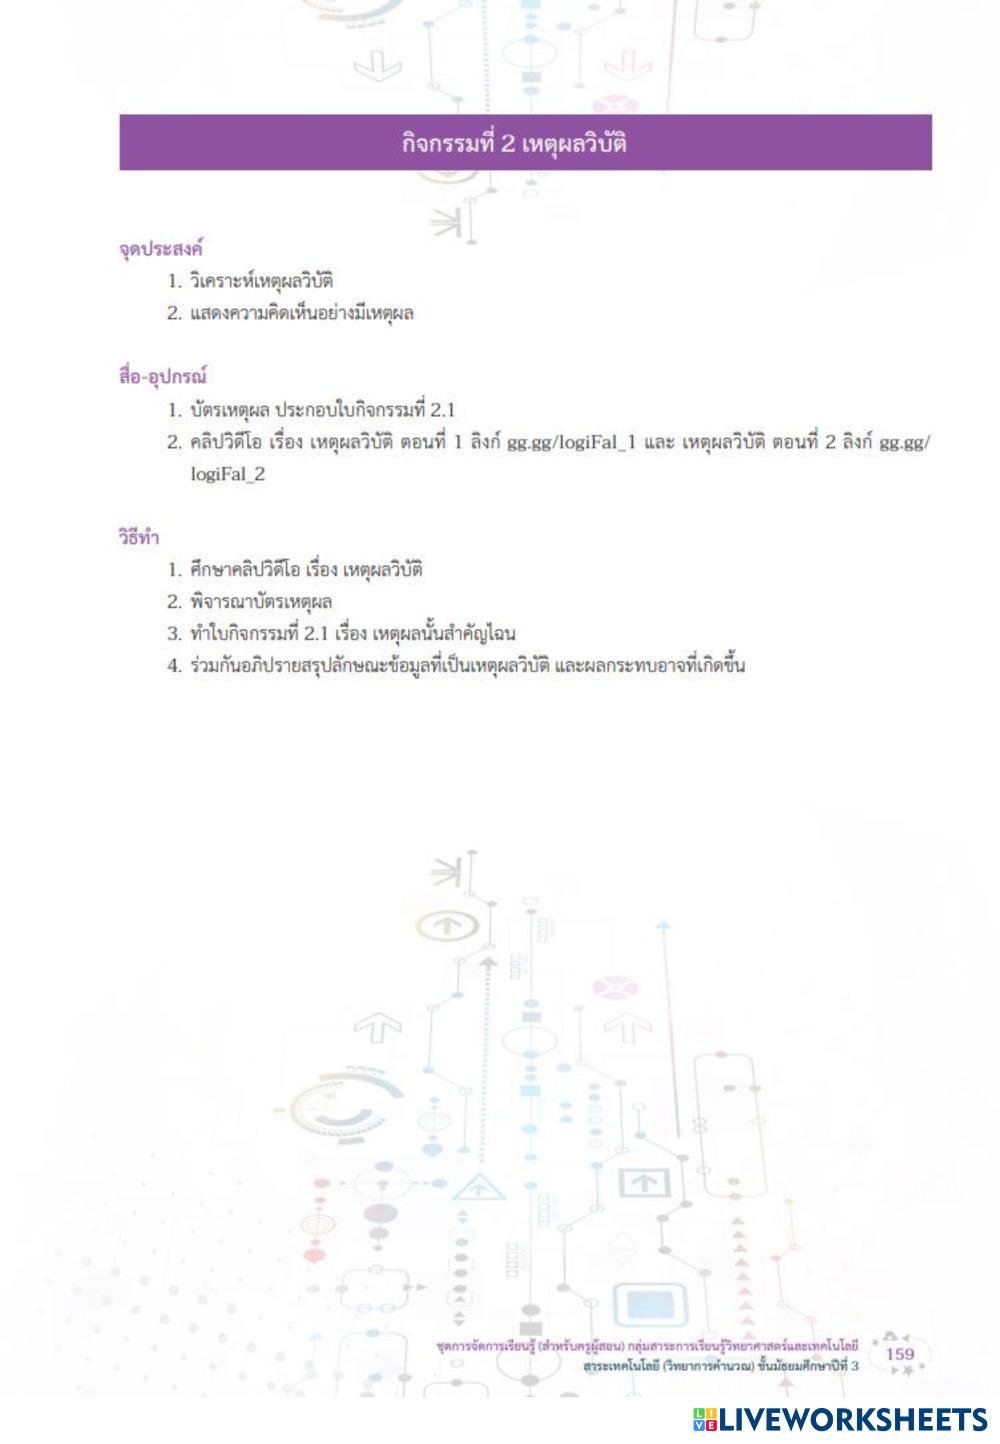 กิจกรรมที่ 2 เหตุผลวิบัติ
จุดประสงค์
1. วิเคราะห์เหตุผลวิบัติ
2. แสดงความคิดเห็นอย่างมีเหตุผล
สื่อ-อุปกรณ์
1. บัตรเหตุผล ประกอบใบกิจกรรมที่ 2.1
2. คลิปวิดีโอ เรื่อง เหตุผลวิบัติ ตอนที่ 1 ลิงก์ gg.gg/logiFal_1 และ เหตุผลวิบัติ ตอนที่ 2 ลิงก์ gg.gg/
logiFal_2
วิธีทำ
1. ศึกษาคลิปวิดีโอ เรื่อง เหตุผลวิบัติ
2. พิจารณาบัตรเหตุผล
3. ทำใบกิจกรรมที่ 2.1 เรื่อง เหตุผลนั้นสำคัญไฉน
4. ร่วมกันอภิปรายสรุปลักษณะข้อมูลที่เป็นเหตุผลวิบัติ และผลกระทบอาจที่เกิดขึ้น
ชุดการจัดการเรียนรู้ (สำหรับครูผู้สอน) กลุ่มสาระการเรียนรู้วิทยาศาสตร์และเทคโนโลยี
สาระเทคโนโลยี (วิทยาการคำนวณ) ชั้นมัธยมศึกษาปีที่ 3
159
LIVE LIVEWORKSHEETS